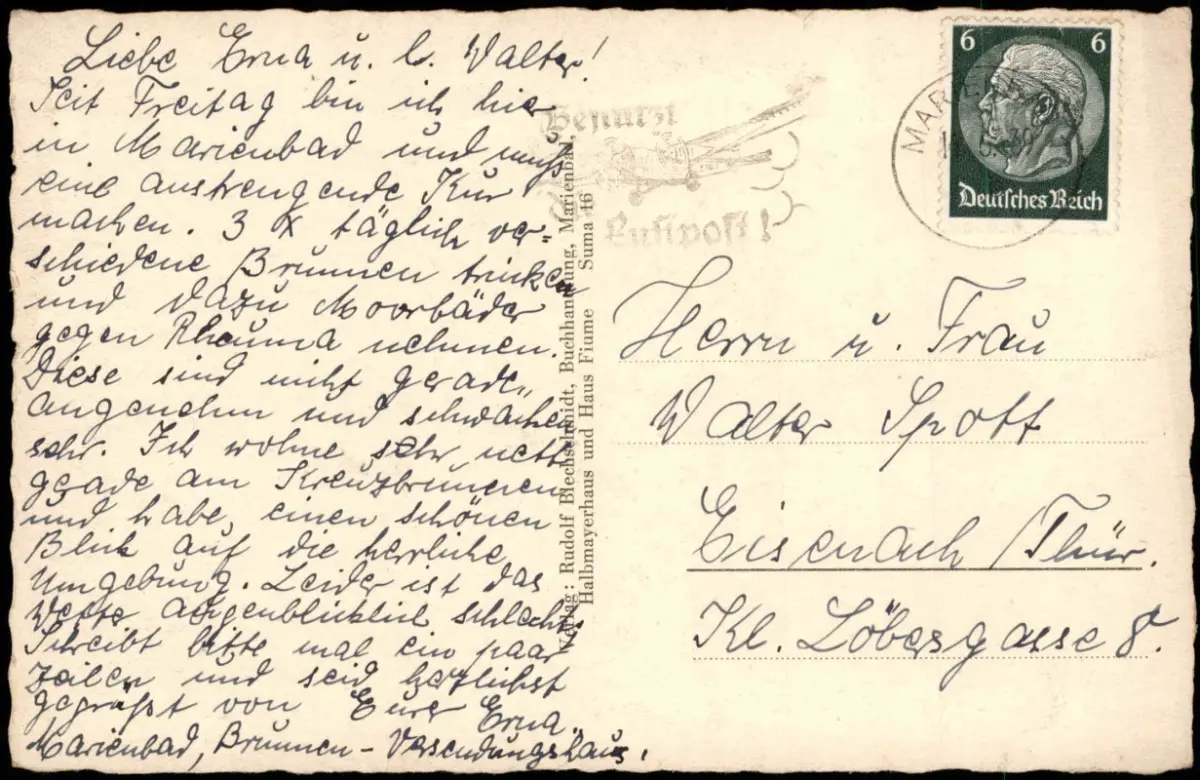 Liebe Erna u. l. Walter!
Seit Freitag bin ich hier
in Marienbad und muss
eine anstrengende Kur
machen. 3 x täglich ver=
schiedene Brunnen trinken
und dazu Moorbäder
gegen Rheuma nehmen.
Diese sind nicht gerade
angenehm und schwächen
sehr. Ich wohne sehr nett
gerade am Kreuzbrunnen
und habe einen schönen
Blick auf die herrliche
Umgebung. Leider ist das
Wetter augenblicklich schlecht.
Schreibt bitte mal ein paar
Zeilen und seid herzlichst
gegrüßt von Eurer Erna.
Marienbad, Brunnen-Versendungshaus.
Verlag: Rudolf Blechschmidt, Buchhandlung, Marienbad,
Halbmayerhaus und Haus Fiume Suma 16
Benutzt
Luftpost!
MARIENBAD
6 6
Deutsches Reich
Herrn u. Frau
Walter Spott
Eisenach /Thür.
Kl. Löbergasse 8.